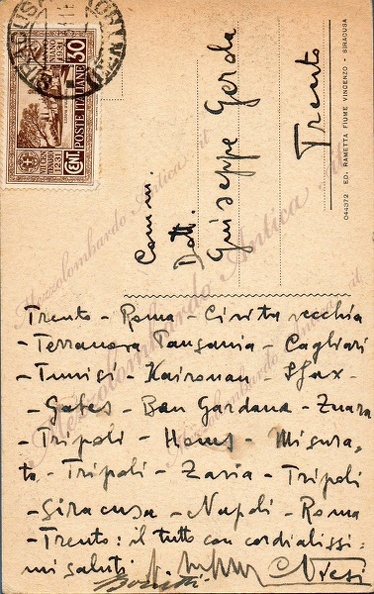 30
CENT.
POSTE ITALIANE
1231
1931
Comm.
Dott.
Giuseppe Gerda
Trento
044372 ED. RAMETTA FIUME VINCENZO - SIRACUSA
Mezzolombardo Antica
Trento - Roma - Civitavecchia
- Terranova Pausania - Cagliari
- Tunisi - Kairouan - Sfax -
- Gabes - Ban Gardana - Zuara
- Tripoli - Homs - Misura,
ta - Tripoli - Zavia - Tripoli
- Siracusa - Napoli - Roma
- Trento: il tutto con cordialissi,
mi saluti